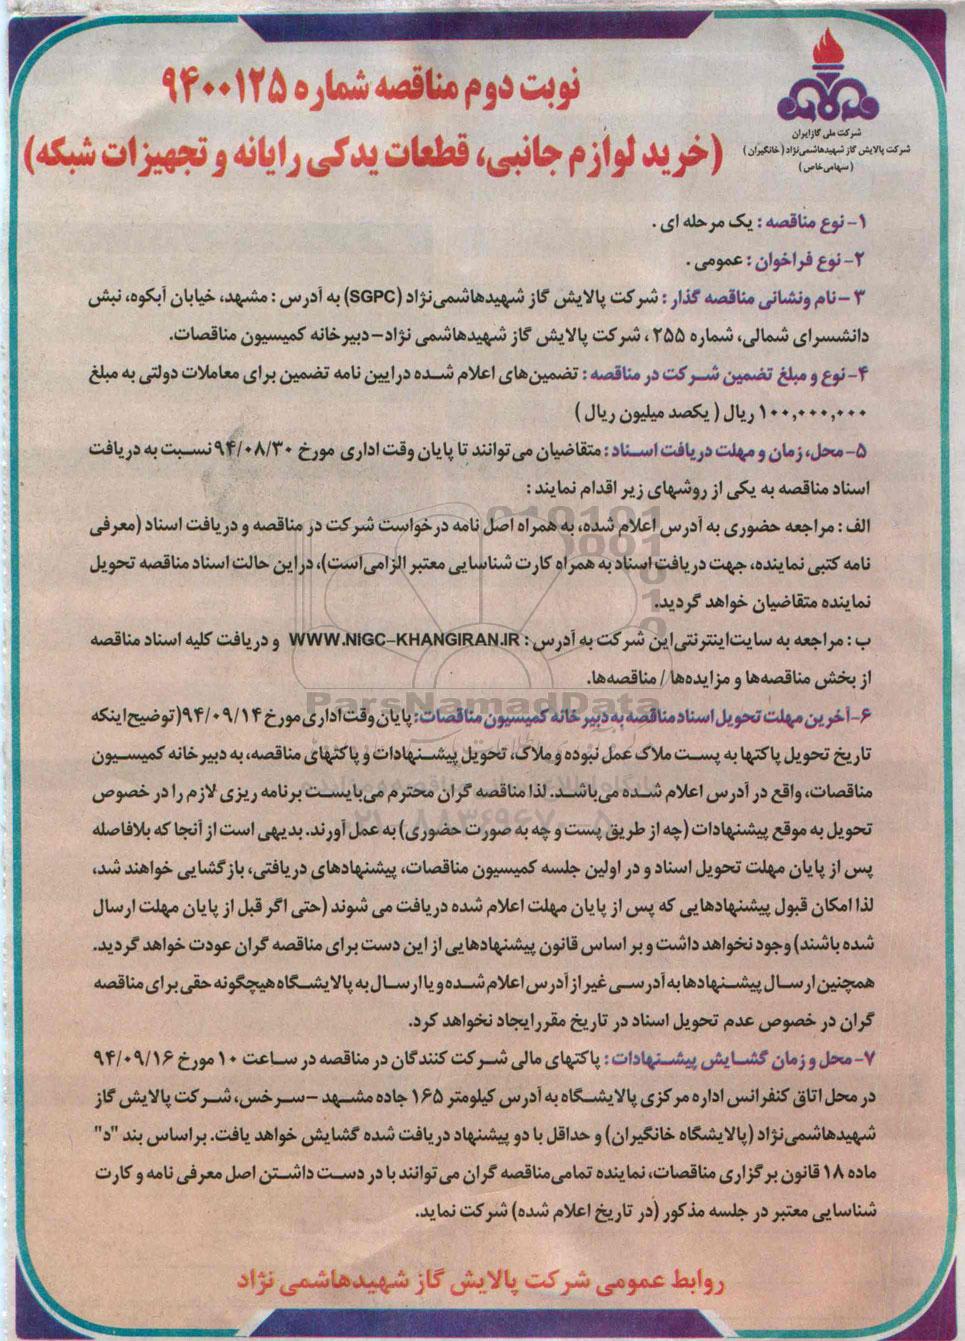 شرکت ملی گاز ایران
شرکت پالایش گاز شهیدهاشمی‌نژاد (خانگیران)
(سهامی خاص)
نوبت دوم مناقصه شماره ۹۴۰۰۱۲۵
(خرید لوازم جانبی، قطعات یدکی رایانه و تجهیزات شبکه)
۱- نوع مناقصه : یک مرحله ای .
۲- نوع فراخوان : عمومی .
۳ - نام ونشانی مناقصه گذار : شرکت پالایش گاز شهیدهاشمی‌نژاد (SGPC) به آدرس : مشهد، خیابان آبکوه، نبش
دانشسرای شمالی، شماره ۲۵۵ ، شرکت پالایش گاز شهیدهاشمی نژاد-دبیرخانه کمیسیون مناقصات.
۴- نوع و مبلغ تضمین شرکت در مناقصه : تضمین‌های اعلام شده درایین نامه تضمین برای معاملات دولتی به مبلغ
۱۰۰,۰۰۰,۰۰۰ ریال ( یکصد میلیون ریال )
۵- محل، زمان و مهلت دریافت اسناد : متقاضیان می‌توانند تا پایان وقت اداری مورخ ۹۴/۰۸/۳۰ نسبت به دریافت
اسناد مناقصه به یکی از روشهای زیر اقدام نمایند :
الف : مراجعه حضوری به آدرس اعلام شده، به همراه اصل نامه درخواست شرکت در مناقصه و دریافت اسناد (معرفی
نامه کتبی نماینده، جهت دریافت اسناد به همراه کارت شناسایی معتبر الزامی‌است)، دراین حالت اسناد مناقصه تحویل
نماینده متقاضیان خواهد گردید.
ب : مراجعه به سایت‌اینترنتی‌این شرکت به آدرس : WWW.NIGC-KHANGIRAN.IR و دریافت کلیه اسناد مناقصه
از بخش مناقصه‌ها و مزایده‌ها / مناقصه‌ها.
ParsNamadData
۶- آخرین مهلت تحویل اسناد مناقصه به دبیر خانه کمیسیون مناقصات: پایان وقت اداری مورخ ۹۴/۰۹/۱۴ (توضیح‌اینکه
تاریخ تحویل پاکتها به پست ملاک عمل نبوده و ملاک، تحویل پیشنهادات و پاکتهای مناقصه، به دبیرخانه کمیسیون
مناقصات، واقع در آدرس اعلام شده می‌باشد. لذا مناقصه گران محترم می‌بایست برنامه ریزی لازم را در خصوص
تحویل به موقع پیشنهادات (چه از طریق پست و چه به صورت حضوری) به عمل آورند. بدیهی است از آنجا که بلافاصله
پس از پایان مهلت تحویل اسناد و در اولین جلسه کمیسیون مناقصات، پیشنهادهای دریافتی، بازگشایی خواهند شد،
لذا امکان قبول پیشنهادهایی که پس از پایان مهلت اعلام شده دریافت می شوند (حتی اگر قبل از پایان مهلت ارسال
شده باشند) وجود نخواهد داشت و بر اساس قانون پیشنهادهایی از این دست برای مناقصه گران عودت خواهد گردید.
همچنین ارسال پیشنهادها به آدرسی غیر از آدرس اعلام شده و یا ارسال به پالایشگاه هیچگونه حقی برای مناقصه
گران در خصوص عدم تحویل اسناد در تاریخ مقرر ایجاد نخواهد کرد.
۷- محل و زمان گشایش پیشنهادات : پاکتهای مالی شرکت کنندگان در مناقصه در ساعت ۱۰ مورخ ۹۴/۰۹/۱۶
در محل اتاق کنفرانس اداره مرکزی پالایشگاه به آدرس کیلومتر ۱۶۵ جاده مشهد -سرخس، شرکت پالایش گاز
شهیدهاشمی‌نژاد (پالایشگاه خانگیران) و حداقل با دو پیشنهاد دریافت شده گشایش خواهد یافت. براساس بند "د"
ماده ۱۸ قانون برگزاری مناقصات، نماینده تمامی‌مناقصه گران می‌توانند با در دست داشتن اصل معرفی نامه و کارت
شناسایی معتبر در جلسه مذکور (در تاریخ اعلام شده) شرکت نماید.
روابط عمومی شرکت پالایش گاز شهیدهاشمی نژاد